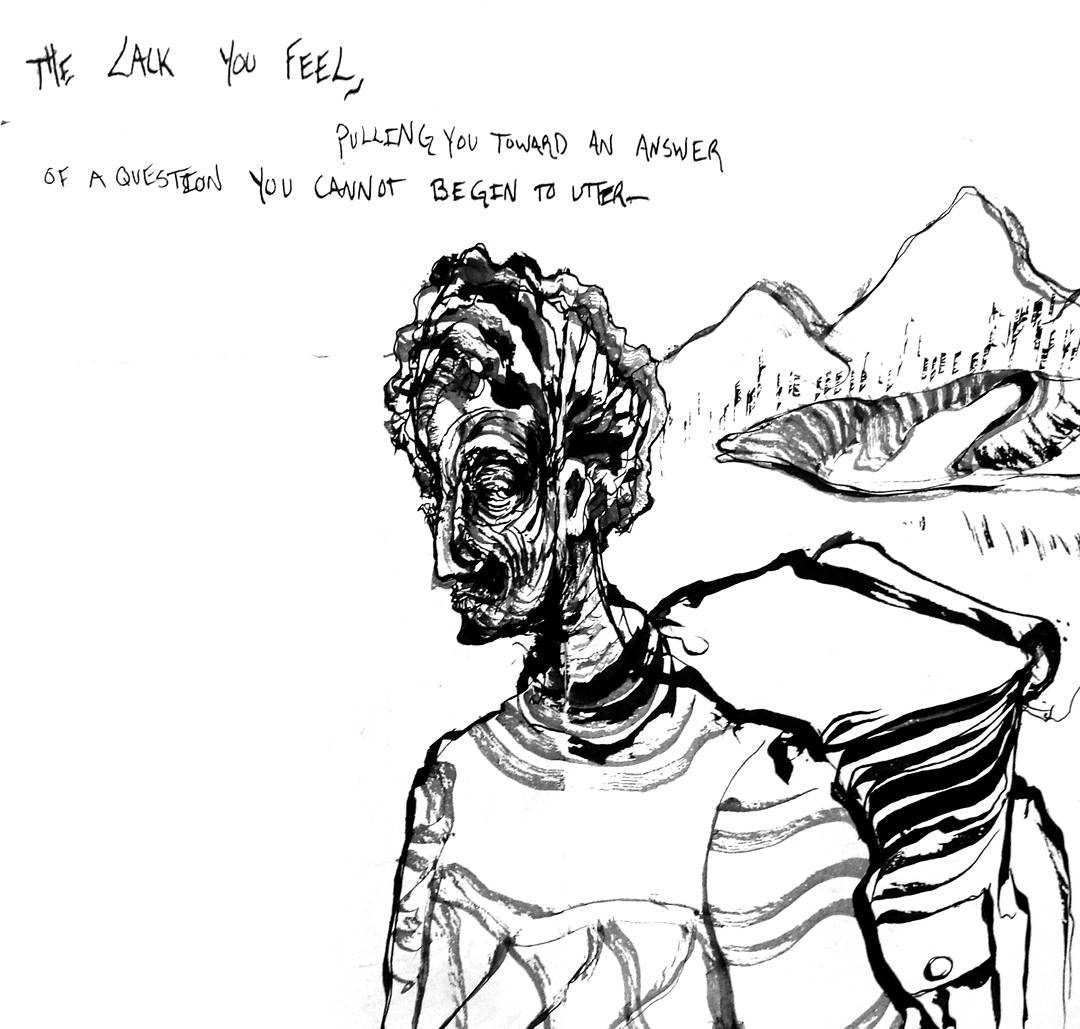 THE LACK YOU FEEL,
PULLING YOU TOWARD AN ANSWER
OF A QUESTION YOU CANNOT BEGIN TO UTTER—